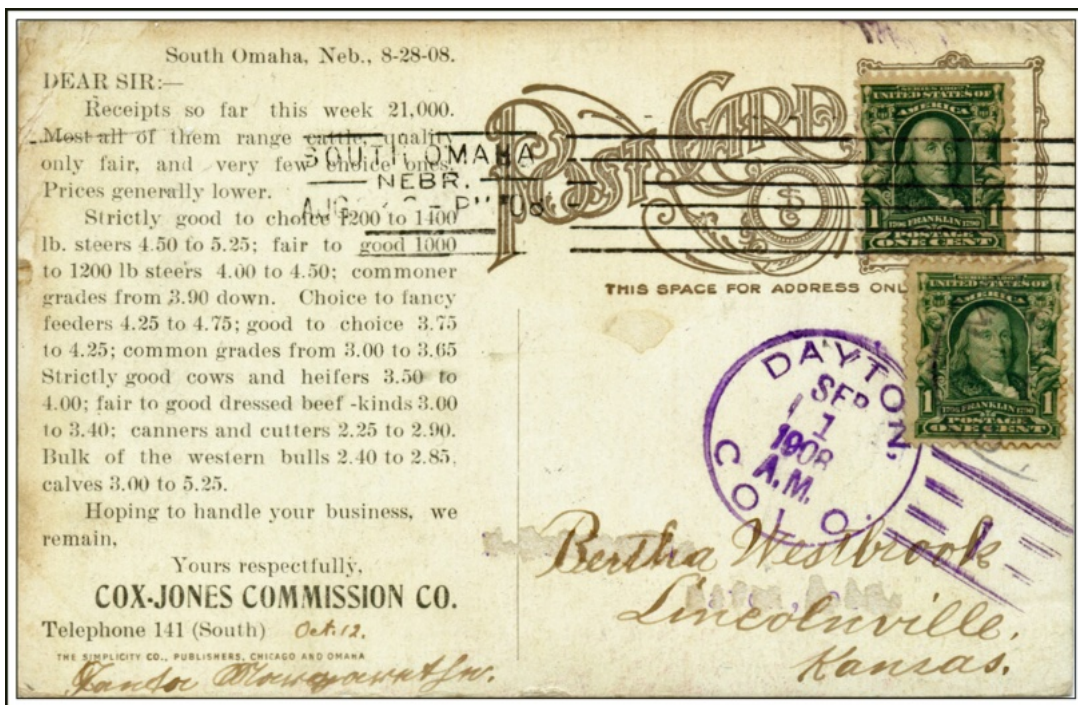 South Omaha, Neb., 8-28-08.
DEAR SIR:—
Receipts so far this week 21,000.
Most all of them range cattle, quality
only fair, and very few choice ones.
Prices generally lower.
Strictly good to choice 1200 to 1400
lb. steers 4.50 to 5.25; fair to good 1000
to 1200 lb steers 4.00 to 4.50; commoner
grades from 3.90 down. Choice to fancy
feeders 4.25 to 4.75; good to choice 3.75
to 4.25; common grades from 3.00 to 3.65
Strictly good cows and heifers 3.50 to
4.00; fair to good dressed beef -kinds 3.00
to 3.40; canners and cutters 2.25 to 2.90.
Bulk of the western bulls 2.40 to 2.85,
calves 3.00 to 5.25.
Hoping to handle your business, we
remain,
Yours respectfully,
COX-JONES COMMISSION CO.
Telephone 141 (South) Oct. 12.
THE SIMPLICITY CO., PUBLISHERS, CHICAGO AND OMAHA
SOUTH OMAHA
NEBR.
POST CARD
THIS SPACE FOR ADDRESS ONL
UNITED STATES OF
AMERICA
1 FRANKLIN 1
POSTAGE
ONE CENT
UNITED STATES OF
AMERICA
1 FRANKLIN 1
POSTAGE
ONE CENT
DAYTON,
SEP
1
1908
A.M.
COLO.
Bertha Westbrook
Lincolnville,
Kansas.